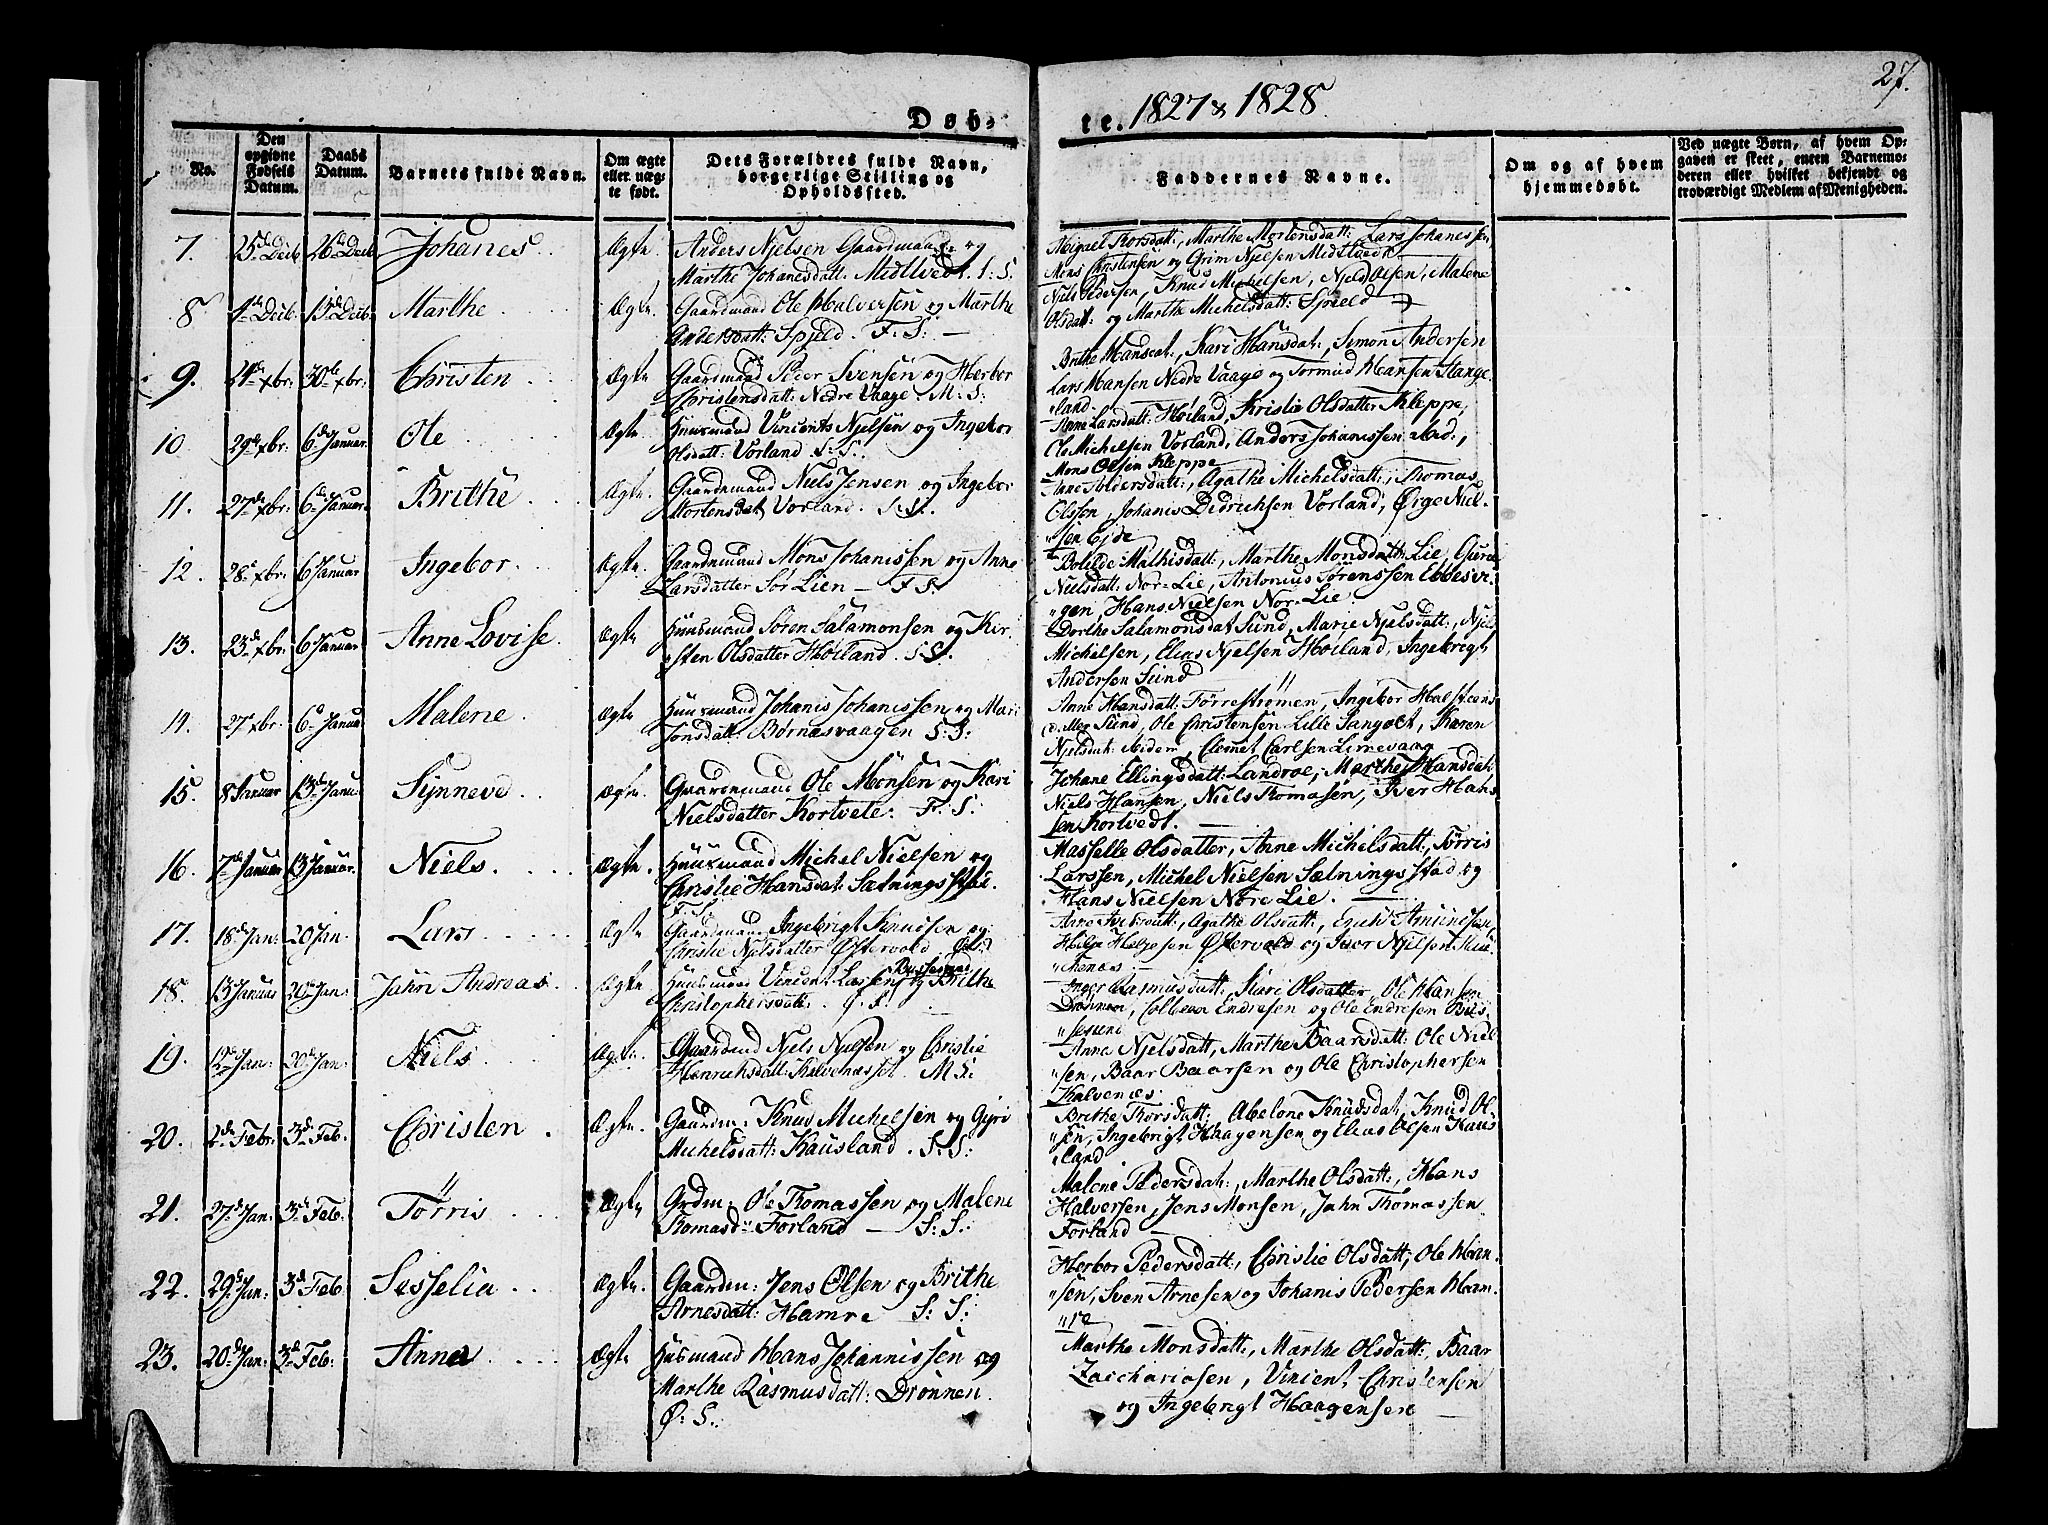 27.
Døb-
te. 1827 & 1828.
No.
Den opgivne Fødsels Datum.
Daabs Datum.
Barnets fulde Navn.
Om ægte eller uægte født.
Dets Forældres fulde Navn, borgerlige Stilling og Opholdssted.
Faddernes Navne.
Om og af hvem hjemmedøbt.
Ved uægte Børn, af hvem Opgaven er skeet, enten Barnemoderen eller hvilket bekjendt og troværdigt Medlem af Menigheden.
7. 25de Decb 26de Decb Johanes Ægte
Anders Njelsen Gaardmand og
Marthe Johanesdatt: Midtvedt. S: S.
Thorsdatt:, Marthe Mortensdatt: Lars Johanessen
Mons Christensen og Grim Njelsen Midtvedt
8 Decb. Decb. Marthe Ægte.
Gaardmand Ole Halversen og Marthe
Andersdatt: Spjeld. F. S: —
Niels Pedersen, Knud Michelsen, Njels Olsen, Malene
Olsdatt: og Marthe Michelsdatt: Spjeld
9. xbr: 30te xbr: Christen Ægte
Gaardmand Peder Svensen og Herbor
Christensdatt: Nedre Vaage. M: S:
Brithe Hansdat:, Kari Hansdat:, Simon Andersen
Lars Hansen Nedre Vaage og Tormud Hansen Stange
land.
10 29de xbr. 6de Januar. Ole Ægte
Huusmand Vincents Njelsen og Ingebor
Olsdatt: Vorland S: S:.
Anne Larsdatt: Høiland, Kristie Olsdatter Kleppe,
Ole Michelsen Vorland, Anders Johanissen ibid.,
Mons Olsen Kleppe
11. 27de xbr: 6de Januar. Brithe Ægte.
Gaardemand Niels Jensen og Ingebor
Mortensdat Vorland. S: S.
Anne Aldersdatt:, Agathe Michelsdatt:, Thomas
Olsson, Johanis Didrichsen Vorland, Ørge Niel-
sen Ejde
12. 28de xbr. 6 Januar Ingebor. Ægte.
Gaardemand Mons Johanissen og Anne
Larsdatter Sør Lien — F. S:
Bolilde Mathisdatt:, Marthe Monsdatt: Lie, Guroe
Nielsdatt: Nor-Lie, Antonius Sørenssen Ebbesvi-
gen, Hans Nielsen Nor-Lie
13. 23de xbr: 6 Januar Anne Lovise. Ægte
Huusmand Søren Salamonsen og Kir
sten Olsdatter Høiland. S: S.
Dorthe Salamonsdat Sund, Marie Njelsdatt:, Njel
Michelsen, Elias Njelsen Høiland, Ingebrigt
Andersen Sund
14. 27de xbr. 6de Januar Malene. Ægte
Huusmand Johanis Johanissen og Mari
Tonsdatt: Børnæsvaagen S: S:
Anne Hansdatt: Törrestrømen, Ingebor Halsteens
datter Sund, Ole Christensen Lille Sangolt, Karen
Njelsdat: ibidem, Clemet Carlsen Limevaag
15. 8 Januar 13de Janu. Synneve Ægte.
Gaardemand Ole Monsen og Kari
Nielsdatter Kortvete. F: S:
Johane Ellingsdatt: Landroe, Marthe Hansdat
Niels Hansen, Niels Tomasen, Iver Hans
sen Kortvedt.
16. 7de Januar 13 Januar. Niels. Ægte.
Huusmand Michel Nielsen og
Christie Hansdat: Sætningsstad.
F. S:
Masselle Olsdatter, Anne Michelsdatt:, Törris
Larssen, Michel Nielsen Sætningsstad og
Hans Nielsen Nore Lie. —
17. 18de Jan: 20 Jan. Lars Ægte
Gaardemand Ingebrigt Knudsen og
Christie Njelsdatter Østervold
Agathe Olsdatt:, Amundsen,
Helje Heljesen Østervold og Iver Njelsen
18. 13 Januar 20de Jan: Jahn Andreas. Ægte
Huusmand Vincent Larsen og Brithe
Christophersdatt:.
Inger Rasmusdatt:, Kari Olsdatter, Ole Hansen
Drönnen, Colbeen Endresen og Ole Endresen Bus-
sesund
19. 19de Jan 20de Jan: Niels Ægte:
Gaardmd Njels Njelsen og Christie
Henrichsdatt: Kalvenæsset. M S:
Anne Njelsdatt, Marthe Baarsdatt: Ole Niel
sen, Baar Baarsen og Ole Christophersen
Kalvenæs.
20. 2de Febr 3de Feb. Christen. Ægte.
Gaardm: Knud Michelsen og Gjøri
Michelsdatt: Kausland. S: S:
Brithe Thorsdatt: Abelone Knudsdat, Knud Ol-
sen, Ingebrigt Haagensen og Elias Olsen Kaus
land
21. 27de Jan: 3de Feb: Törris Ægte
Grdm: Ole Thomassen og Malene
Tomasd: Forland — S: S:
Malene Pedersdat:, Marthe Olsdatt:, Hans
Halversen, Jens Monsen, Jahn Thomassen
Forland —
22. 29de Jan: 3de Feb Sesselia Ægte.
Gaardm: Jens Olsen og Brithe
Arnesdatt: Hamre S: S:
Herbor Pedersdatt:, Christie Olsdatt:, Ole Han-
sen, Sven Arnesen og Johanis Pedersen Ham-
re
23. 20de Jan: 3de Feb: Anna Ægte
Husmand Hans Johannissen og
Marthe Rasmusdatt: Drönnen.
Ø: S.
Marthe Monsdatt:, Marthe Olsdatt:, Baar
Zacchariasen, Vincent Christensen
og Ingebrigt Haagensen —